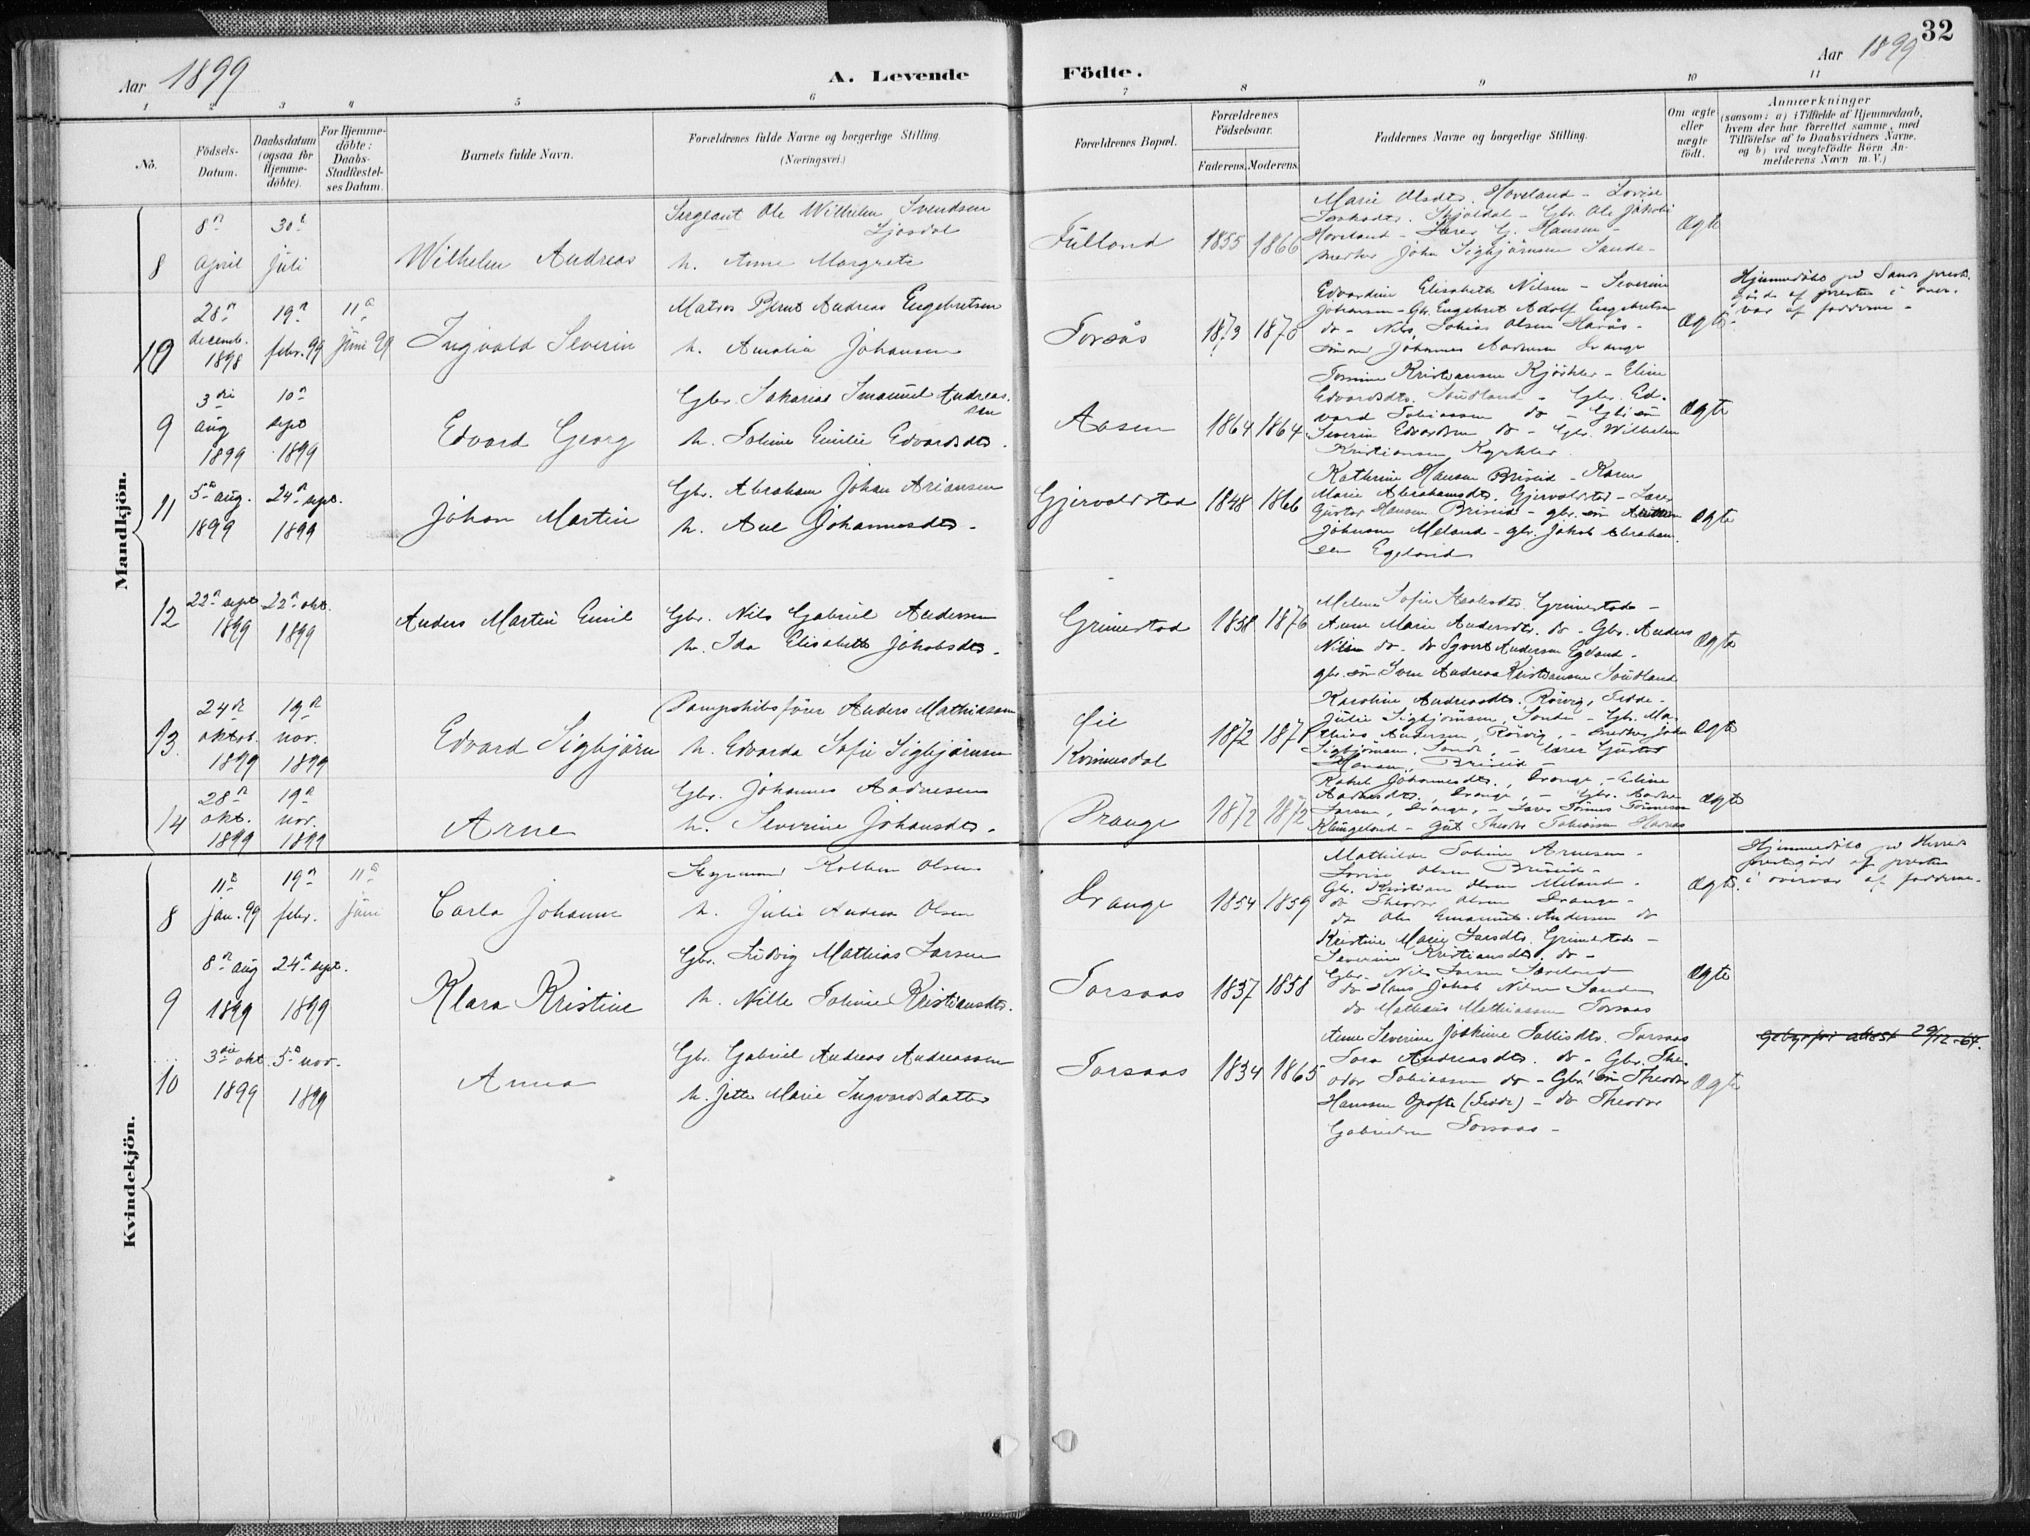 32
Aar 1899
A. Levende
Födte.
Aar 1899
1 2 3 4 5 6
7 8 9 10 11
No.
Födsels-Datum.
Daabsdatum (ogsaa for Hjemme-döbte).
For Hjemme-döbte: Daabs-Stadfæstel-ses Datum.
Barnets fulde Navn.
Forældrenes fulde Navne og borgerlige Stilling.
(Næringsvei.)
Forældrenes Bopæl.
Forældrenes Födselsaar.
Faderens. Moderens.
Faddernes Navne og borgerlige Stilling.
Om ægte eller uægte födt.
Anmærkninger
(saasom: a) i Tilfælde af Hjemmedaab,
hvem der har forrettet samme, med
Tilföielse af to Daabsvidners Navne.
og b) ved uægtefödte Börn An-
melderens Navn m. V.)
Mandkjön.
8
8de april
30te juli
Wilhelm Andreas
Sergeant Ole Wilhelm Svendsen
Ljosdal
h. Anne Margrete
1855 1866
Marie Olsdtr. Hoveland - Lovise
Skjoldal - Gbr. Ole Jakobs
Hoveland - Lærer G. Hansen -
John Sigbjörnsen Sande -
Ægte
10
28de decemb. 1898
19de febr. 99
11te juni 99
Ingvald Severin
Matros Bernt Andreas Engebretsen
h. Amalia Johansen
Torsås
1873 1870
Edvardine Elisabeth Nilsen - Severine
Johansen - Gbr. Engebret Adolf Engebretsen
do - Nils Tobias Olsen Havås -
Johannes Aadnesen Drange
Ægte
Hjemmedöbt på Sands prest-
gård af presten i over-
vær af fadderne -
9
3die aug 1899
10de sept 1899
Edvard Georg
Gbr. Sakarias Imanuel Andreas-
sen
h. Toline Emilie Edvardsdtr.
Aasen
1864 1864
Kristiansen - Eline
Edvardsdtr. Soudland - Gbr. Ed-
vard Tobiassen do - Gbr. sön
Severin Edvardsen do - Gbr. Wilhelm
Kristiansen
ægte
11
5te aug. 1899
24de sept. 1899
Johan Martin
Gbr. Abraham Johan Ariansen
h. Ane Johannesdtr -
Gjervoldstad
1848 1866
Kathrine Hansen Briseid - Karen
Marie Abrahamsdtr. Gjervoldstad - Lærer
Gustav Hansen Briseid - gbr. sön
Johnsen Meland - gbr. Jakob Abraham-
sen Egeland
Ægte
12
22de sept 1899
22de okt. 1899
Anders Martin Emil
Gbr. Nils Gabriel Andersen
h. Ida Elisabeth Jakobsdtr -
Grimestad
1858 1876
Sofie Grimestad -
Anne Marie Andersdtr. do - Gbr. Anders
Nilsen do - do Sgvert Andersen Egeland -
gbr. sön Sven Andreas Kristiansen Soudland
Ægte
13.
24de oktob. 1899
19de nov. 1899
Edvard Sigbjörn
Dampskibsförer Anders Mathiasen
h. Edvarda Sofie Sigbjörnsen
Kvinnesdal
1872 1871
Karoline Andreasdtr. Rörvig, Fedde -
Julie Sigbjörnsen, Sande - Gbr. Ma-
thias Andersen, Rörvig, - John
Sigbjörnsen, Sande, - lærer Gustav
Hansen, Briseid -
Ægte
14
28de okt. 1899
19de nov. 1899
Arne
Gbr. Johannes Aadnesen
h. Severine Johansdtr.
Drange
1872 1872
Rakel Johannesdtr., Drange, - Eline
Aadnesdtr. Drange, - Gbr. Aadne
Larsen, Drange, - Tönnes Tönnesen
Klungeland - Theodor Tobiassen Havaas
Ægte
Kvindekjön.
8
11te jan. 99
19de febr.
11te juni
Carla Johanne
Styrmand Kolben Olsen
h. Julie Andrea Olsen
Drange
1854 1859
Mathilde Toline Arnesen -
Lovise Olsen Briseid -
Gbr. Kristian Olsen Meland -
do Theodor Olsen Drange -
do Ole Emanuel Andersen do
Ægte.
Hjemmedöbt på Herred
prestegård af presten
i overvær af fadderne -
9
8de aug 1899
24de sept. 1899
Klara Kristine
Gbr. Ludvig Mathias Larsen
h. Nille Toline Kristiansdtr.
Torsaas
1857 1858
Kristine Marie Larsdtr. Grimestad -
Severine Kristiansdtr. do -
Gbr. Nils Larsen
do Hans Jakob Nilsen Sande
do Mathias Mathiassen Torsaas
Ægte
10
3die okt 1899
5te nov. 1899
Anna
Gbr. Gabriel Andreas Andreassen
h. Jette Marie Ingvardsdatter
Torsaas
1834 1865
Anne Severine Joskime Tallisdtr. Torsaas
Tora Andreasdtr. do - Gbr. The-
odor Tobiassen do - Gbr. sön Theodor
Hanssen Opofte (Fedde) - do Theodor
Gabrielsen Torsaas -
Ægte
Gebyrfri attest 29/12-64.